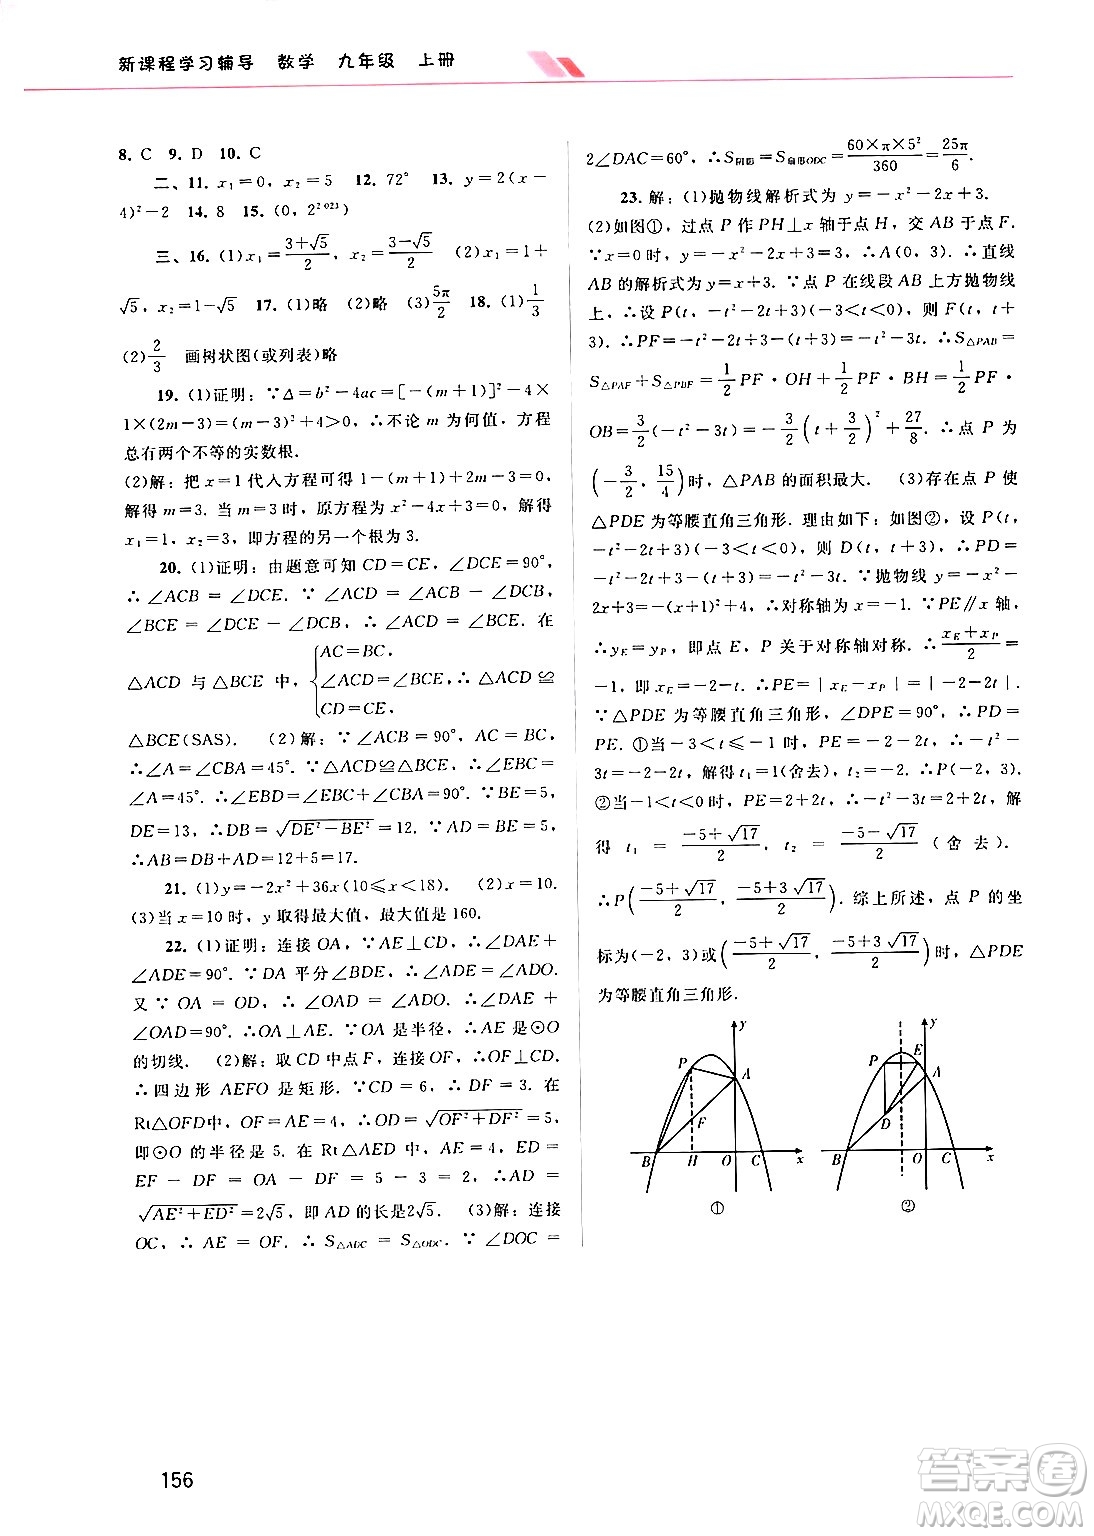 新课程学习辅导 数学 九年级 上册
8. C 9. D 10. C
二、11. x₁=0, x₂=5 12. 72° 13. y=2(x-
4)²-2 14. 8 15. (0, 2²⁰²³)
三、16. (1)x₁=(3+√5)/2, x₂=(3-√5)/2 (2)x₁=1+
√5, x₂=1-√5 17. (1)略 (2)略 (3)5π/2 18. (1)1/3
(2)2/3 画树状图(或列表)略
19. (1)证明: ∵Δ=b²-4ac=[-(m+1)]²-4×
1×(2m-3)=(m-3)²+4>0, ∴不论 m 为何值, 方程
总有两个不等的实数根.
(2)解: 把 x=1 代入方程可得 1-(m+1)+2m-3=0,
解得 m=3. 当 m=3 时, 原方程为 x²-4x+3=0, 解得
x₁=1, x₂=3, 即方程的另一个根为 3.
20. (1)证明: 由题意可知 CD=CE, ∠DCE=90°,
∴ ∠ACB = ∠DCE. ∵ ∠ACD = ∠ACB - ∠DCB,
∠BCE = ∠DCE - ∠DCB, ∴ ∠ACD = ∠BCE. 在
△ACD 与 △BCE 中, {AC=BC, ∠ACD=∠BCE, CD=CE, ∴ △ACD ≌
△BCE(SAS). (2)解: ∵ ∠ACB = 90°, AC = BC,
∴ ∠A = ∠CBA = 45°. ∵ △ACD≌△BCE, ∴ ∠CBE =
∠A=45°. ∴∠EBD=∠EBC+∠CBA=90°. ∵BE=5,
DE=13, ∴DB=√(DE²-BE²)=12. ∵AD=BE=5,
∴AB=DB+AD=12+5=17.
21. (1)y=-2x²+36x(10≤x<18). (2)x=10.
(3)当 x=10 时, y 取得最大值, 最大值是 160.
22. (1)证明: 连接 OA, ∵AE⊥CD, ∴∠DAE+
∠ADE=90°. ∵ DA 平分∠BDE, ∴∠ADE=∠ADO.
又 ∵ OA = OD, ∴ ∠OAD = ∠ADO. ∴ ∠DAE +
∠OAD=90°. ∴OA⊥AE. ∵OA 是半径, ∴AE 是⊙O
的切线. (2)解: 取 CD 中点 F, 连接 OF, ∴OF⊥CD.
∴ 四边形 AEFO 是矩形. ∵CD=6, ∴ DF = 3. 在
Rt△OFD中, OF=AE=4, ∴OD=√(OF²+DF²)=5,
即⊙O 的半径是 5. 在 Rt△AED 中, AE=4, ED=
EF - DF = OA - DF = 5 - 3 = 2, ∴ AD =
√(AE²+ED²)=2√5, 即 AD 的长是2√5. (3)解: 连接
OC, ∴ AE = OF. ∴ S△ADC = S△ODC. ∵ ∠DOC =
2∠DAC=60°, ∴S阴影=S扇形ODC=60×π×5²/360=25π/6.
23. 解: (1)抛物线解析式为 y=-x²-2x+3.
(2)如图①, 过点 P 作 PH⊥x 轴于点 H, 交 AB 于点 F.
∵x=0 时, y=-x²-2x+3=3, ∴A(0, 3). ∴直线
AB 的解析式为 y=x+3. ∵点 P 在线段 AB 上方抛物线
上, ∴设 P(t, -t²-2t+3)(-3<t<0), 则 F(t, t+
3). ∴PF=-t²-2t+3-(t+3)=-t²-3t. ∴S△PAB=
S△PAF+S△PBF=1/2 PF·OH+1/2 PF·BH=1/2 PF·
OB=3/2(-t²-3t)=-3/2(t+3/2)²+27/8. ∴点 P 为
(-3/2, 15/4)时, △PAB 的面积最大. (3)存在点 P 使
△PDE 为等腰直角三角形. 理由如下: 如图②, 设 P(t,
-t²-2t+3)(-3<t<0), 则 D(t, t+3), ∴PD=
-t²-2t+3-(t+3)=-t²-3t. ∵抛物线 y=-x²-
2x+3=-(x+1)²+4, ∴对称轴为 x=-1. ∵PE∥x 轴,
∴yE=yP, 即点 E, P 关于对称轴对称. ∴(xE+xP)/2=
-1, 即 xE=-2-t. ∴PE=|xE-xP|=|-2-2t|.
∵△PDE 为等腰直角三角形, ∠DPE=90°, ∴PD=
PE. ①当-3<t≤-1 时, PE=-2-2t, ∴-t²-
3t=-2-2t, 解得 t₁=1(舍去), t₂=-2. ∴P(-2, 3).
②当-1<t<0 时, PE=2+2t, ∴-t²-3t=2+2t, 解
得 t₁ = (-5+√17)/2, t₂ = (-5-√17)/2 (舍去).
∴P((-5+√17)/2, (-5+3√17)/2). 综上所述, 点 P 的坐
标为(-2, 3)或((-5+√17)/2, (-5+3√17)/2)时, △PDE
为等腰直角三角形.
y P A F B H O C x ①
y P E A D B O C x ②
156
答案圈
MXQE.COM